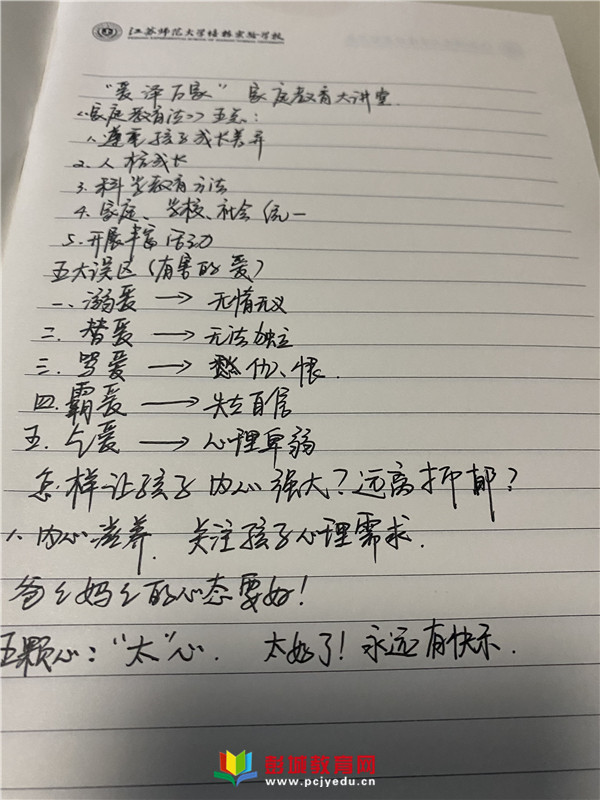 江苏师范大学培林实验学校
“爱泽万家”家庭教育大讲堂.
《家庭教育法》五点:
1.尊重孩子成长差异
2.人格成长
3.科学教育方法
4.家庭、学校、社会统一
5.开展丰富活动
五大误区(有害的爱)
一、溺爱→无情无义
二.替爱→无法独立
三.骂爱→愁仇、恨.
四.霸爱→失去自信
五.乞爱→心理卑弱
怎样让孩子内心强大?远离抑郁?
1.内心滋养.关注孩子心理需求.
爸爸妈妈的心态要好!
五颗心:“太”心.太好了!永远有快乐.
彭城教育网
www.pcjyedu.cn